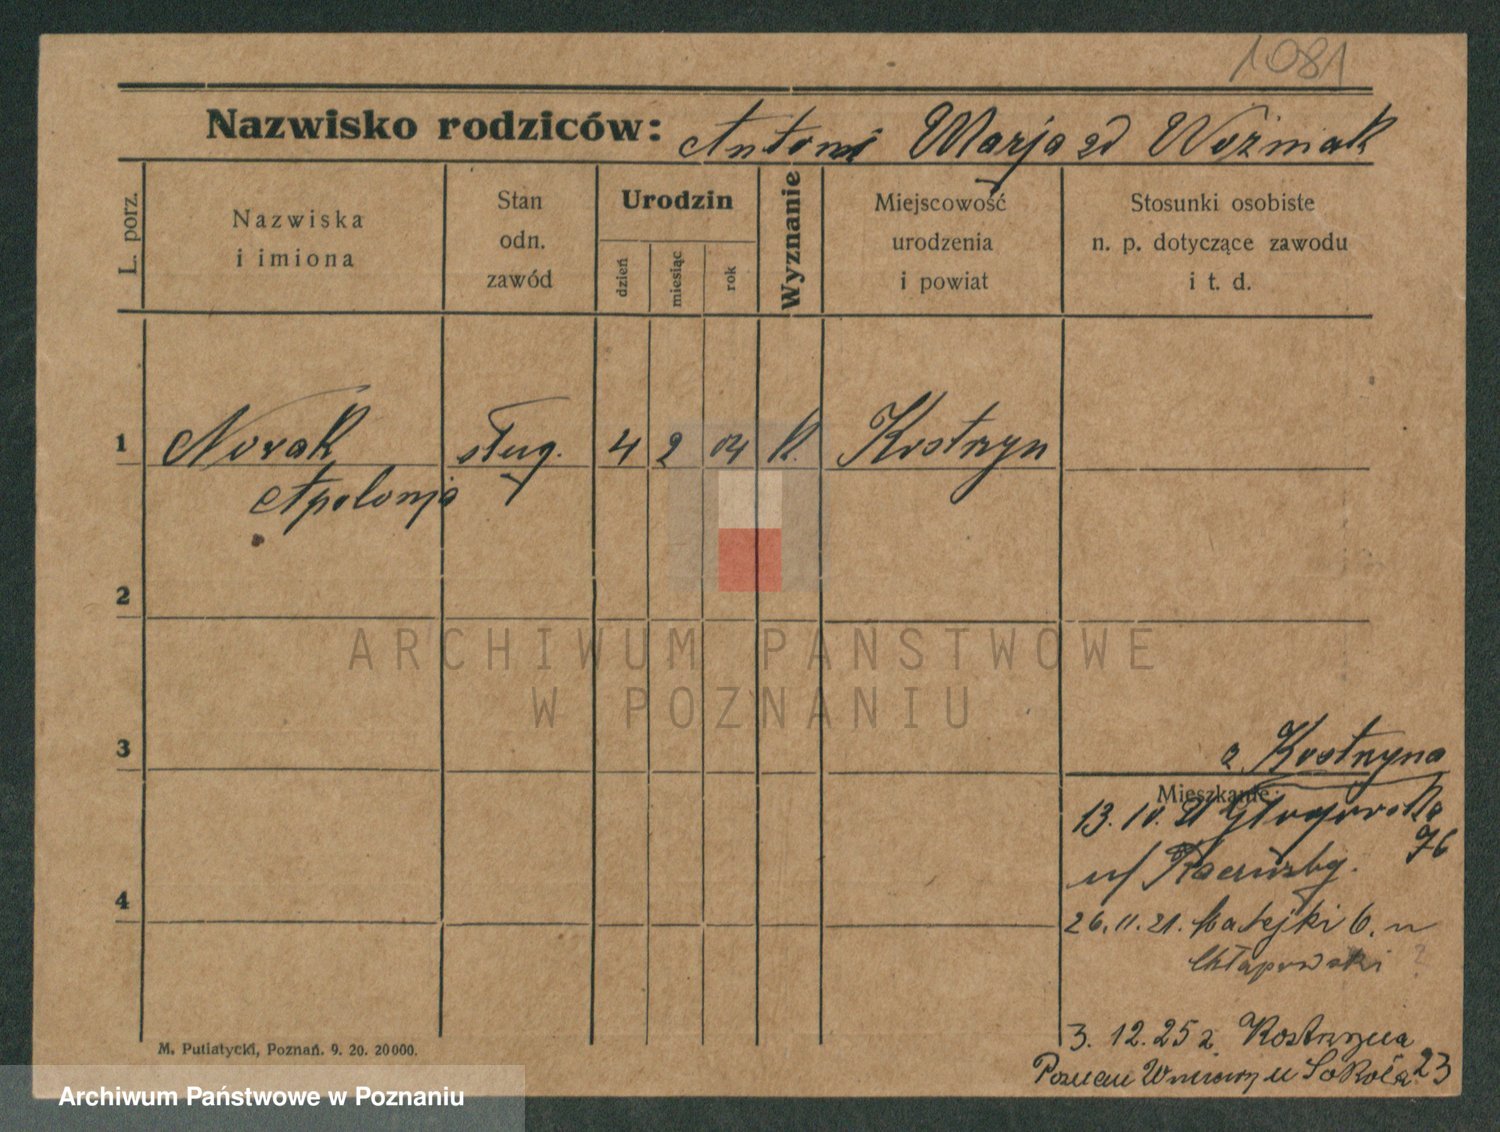 1081
Nazwisko rodziców: Antoni Marja zd Woźniak
L. porz.
Nazwiska
i imiona
Stan
odn.
zawód
Urodzin
dzień
miesiąc
rok
Wyznanie
Miejscowość
urodzenia
i powiat
Stosunki osobiste
n. p. dotyczące zawodu
i t. d.
1 Novak służ. 4 2 04 K. Kostrzyn
Apolonja
2
ARCHIWUM PAŃSTWOWE
W POZNANIU
3
z Kostrzyna
Mieszkanie:
13. IV. 21 Głogowska
76
u/
4
26. 11. 21. Matejki 6. u
Chłapowski ?
3. 12. 25 z Kostrzyna
M. Putiatycki, Poznań. 9. 20. 20000.
23
Archiwum Państwowe w Poznaniu